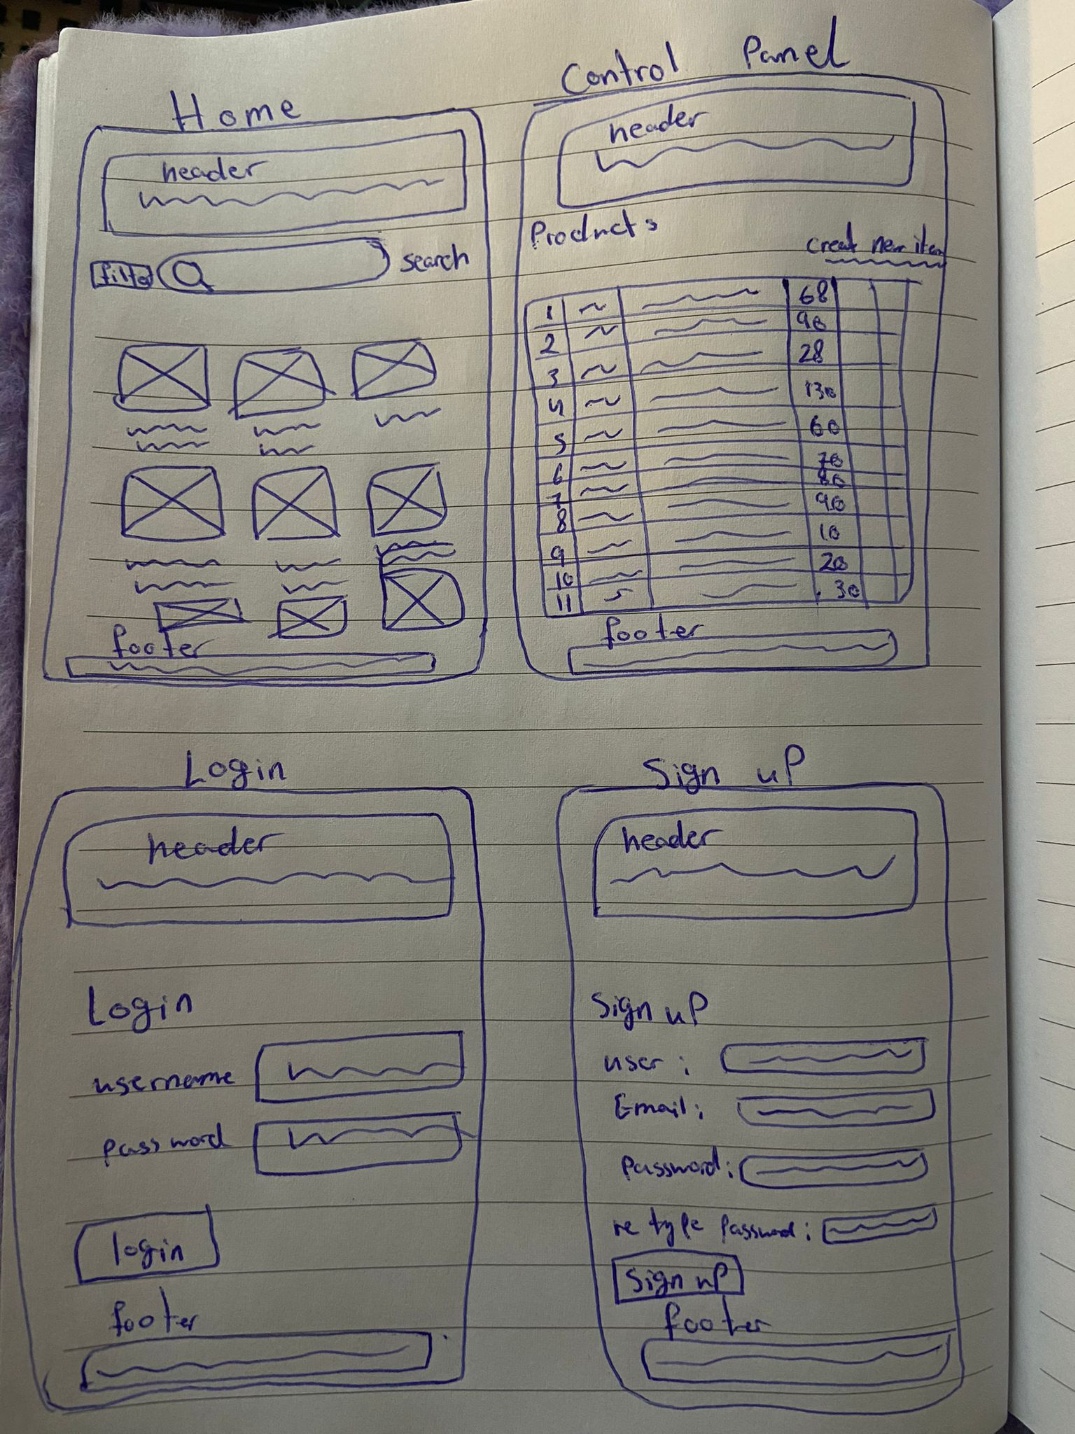 Home
header
filter
search
footer
Control Panel
header
Products
creat new item
1 68
2 90
3 28
4 130
5 60
6 70
7 80
8 90
9 10
10 20
11 30
footer
Login
header
Login
username
password
login
footer
Sign up
header
Sign up
user :
Email :
Password :
re type password :
Sign up
footer